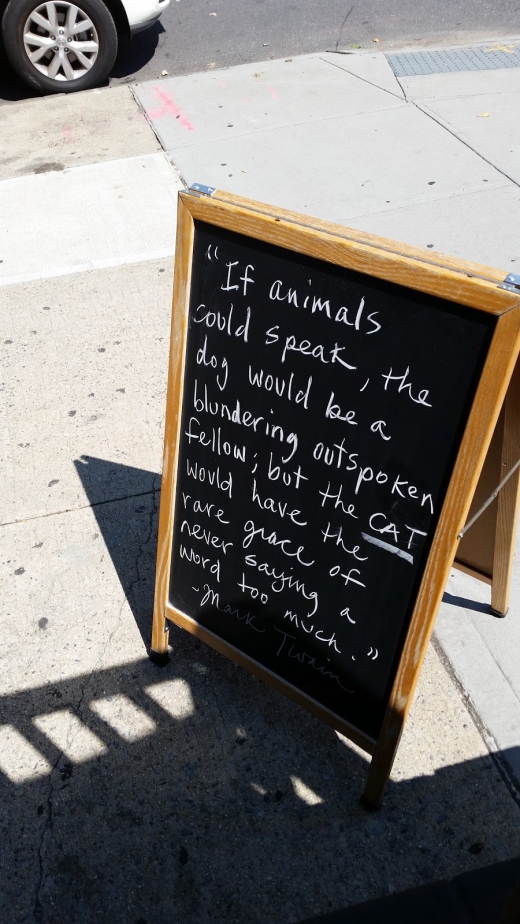 "If animals
could speak, the
dog would be a
blundering outspoken
fellow; but the CAT
would have the
rare grace of
never saying a
word too much."
-Mark Twain